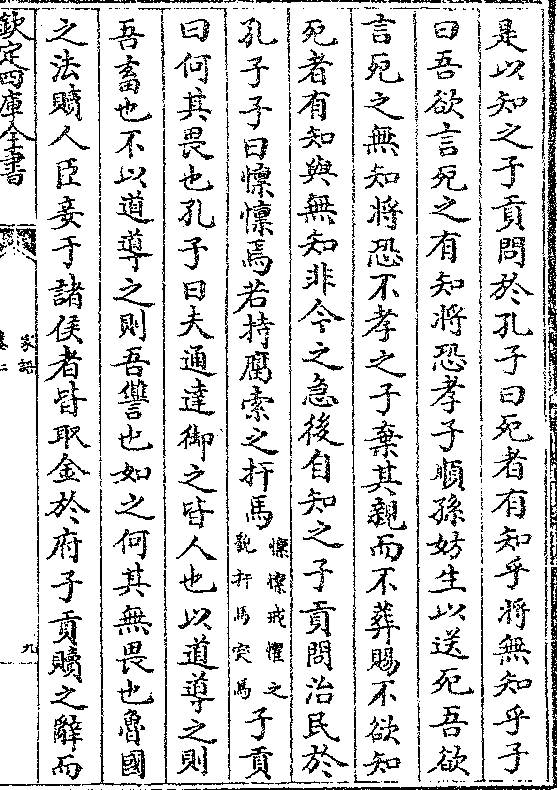 是以知之子貢問於孔子曰死者有知乎將無知乎子
曰吾欲言死之有知將恐孝子順孫妨生以送死吾欲
言死之無知將恐不孝之子棄其親而不葬賜不欲知
死者有知與無知非今之急後自知之子貢問治民於
孔子子曰懍懍焉若持腐索之扞馬懍懍戒懼之貌扞馬突馬子貢
曰何其畏也孔子曰夫通達御之皆人也以道導之則
吾畜也不以道導之則吾讐也如之何其無畏也魯國
之法贖人臣妾于諸侯者皆取金於府子貢贖之辭而
欽定四庫全書
家語
九